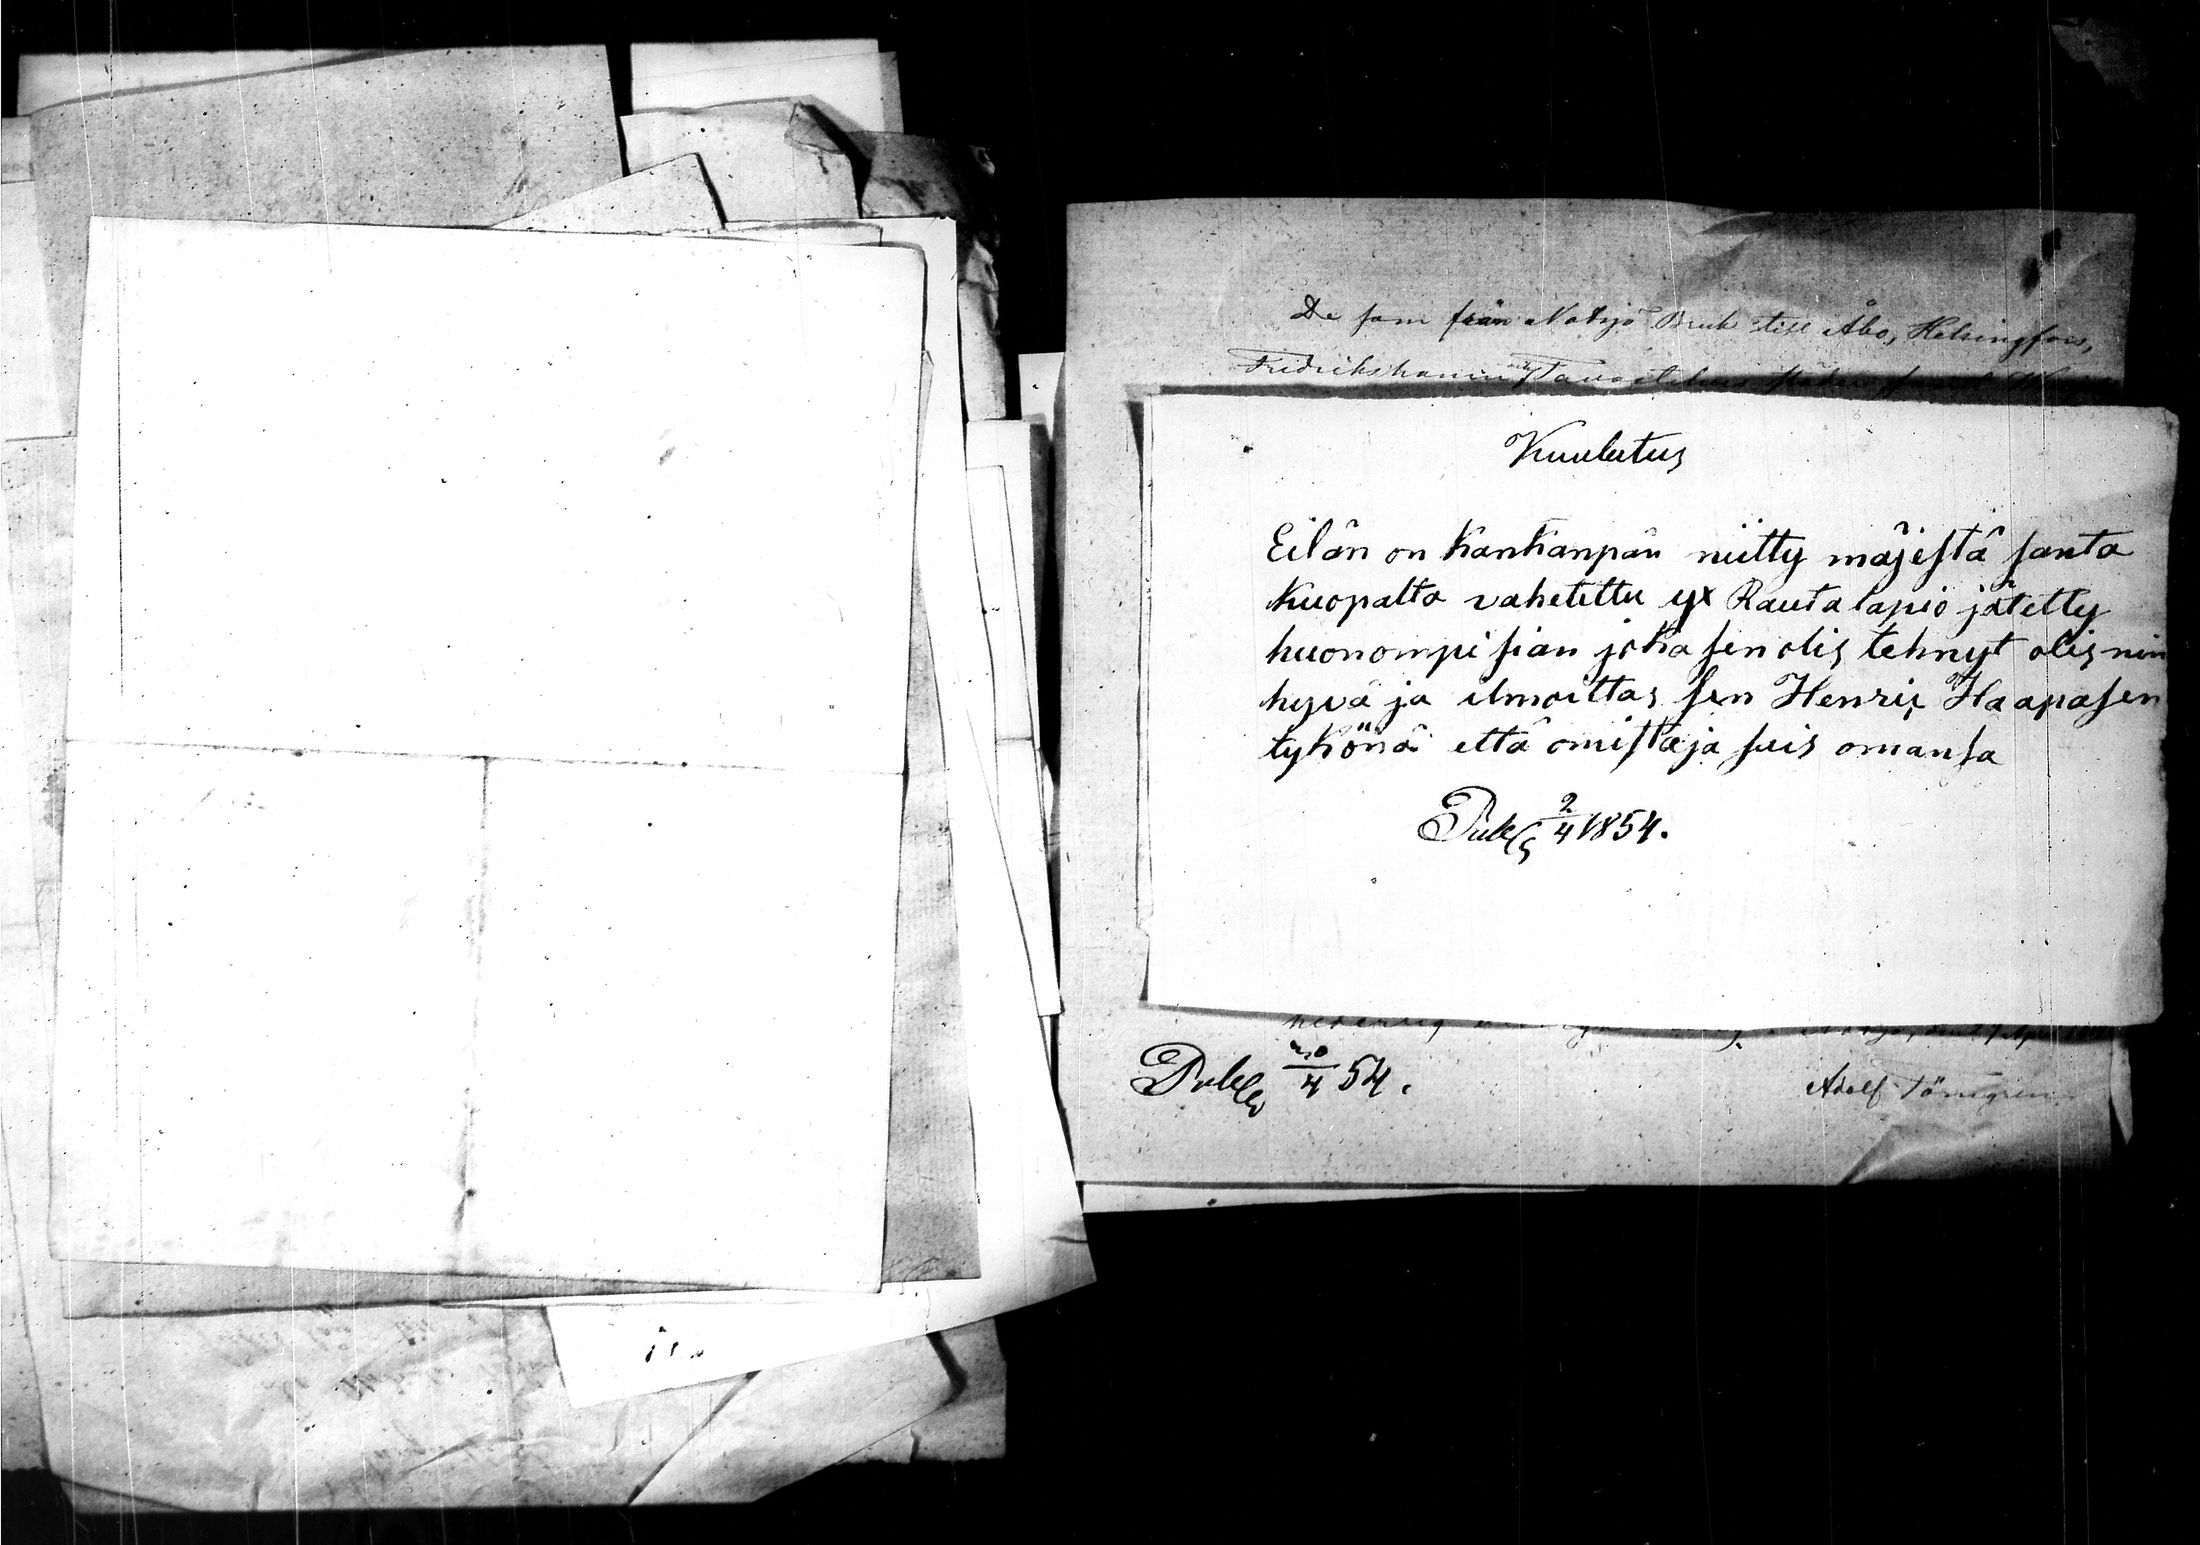 De som från Notsjö Bruk till Åbo, Helsingfors,
Fredrikshamn Tavastehus
Kuulutus
Eilän on Kankanpän niitty mäjestä santa
Kuopalta vahetettu yx Rauta lapio jätetty
huonompi sian joka sen olis tehnyt olis nin
hyvä ja ilmoittas sen Henric Haapasen
tykönä että omistaja suis omansa
Publ 2/4 1854.
Publ 54.
Adolf Törngren